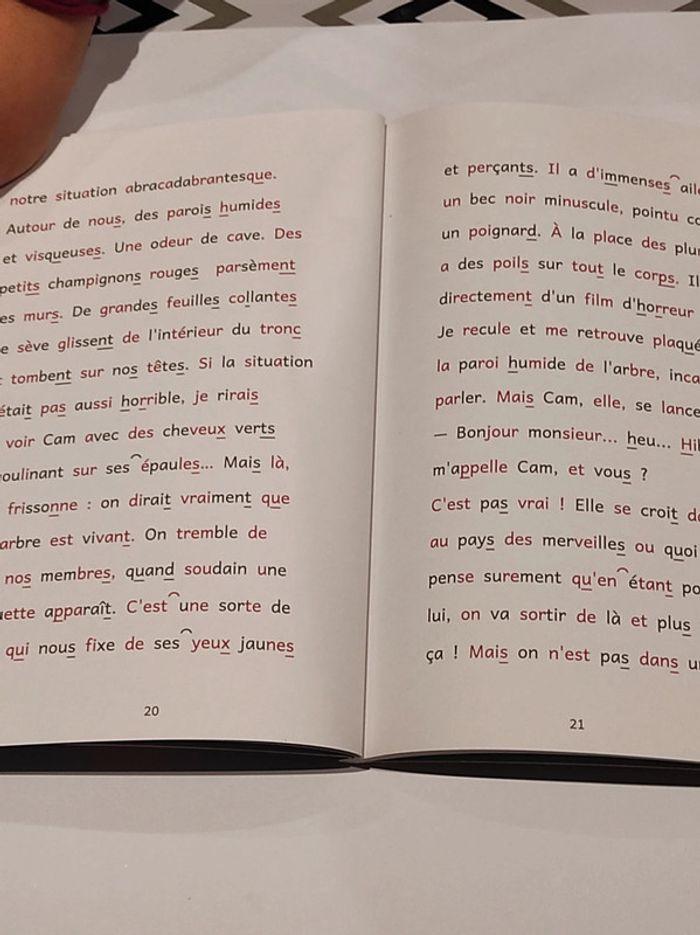 notre situation abracadabrantesque.
Autour de nous, des parois humides
et visqueuses. Une odeur de cave. Des
petits champignons rouges parsèment
murs. De grandes feuilles collantes
sève glissent de l'intérieur du tronc
tombent sur nos têtes. Si la situation
était pas aussi horrible, je rirais
voir Cam avec des cheveux verts
sur ses épaules... Mais là,
frissonne : on dirait vraiment que
arbre est vivant. On tremble de
nos membres, quand soudain une
apparaît. C'est une sorte de
qui nous fixe de ses yeux jaunes
20
et perçants. Il a d'immenses
un bec noir minuscule, pointu
un poignard. À la place des
a des poils sur tout le corps. Il
directement d'un film d'horreur
Je recule et me retrouve plaqué
la paroi humide de l'arbre,
parler. Mais Cam, elle, se lance
— Bonjour monsieur... heu...
m'appelle Cam, et vous ?
C'est pas vrai ! Elle se croit
au pays des merveilles ou quoi
pense surement qu'en étant
lui, on va sortir de là et plus
ça ! Mais on n'est pas dans
21